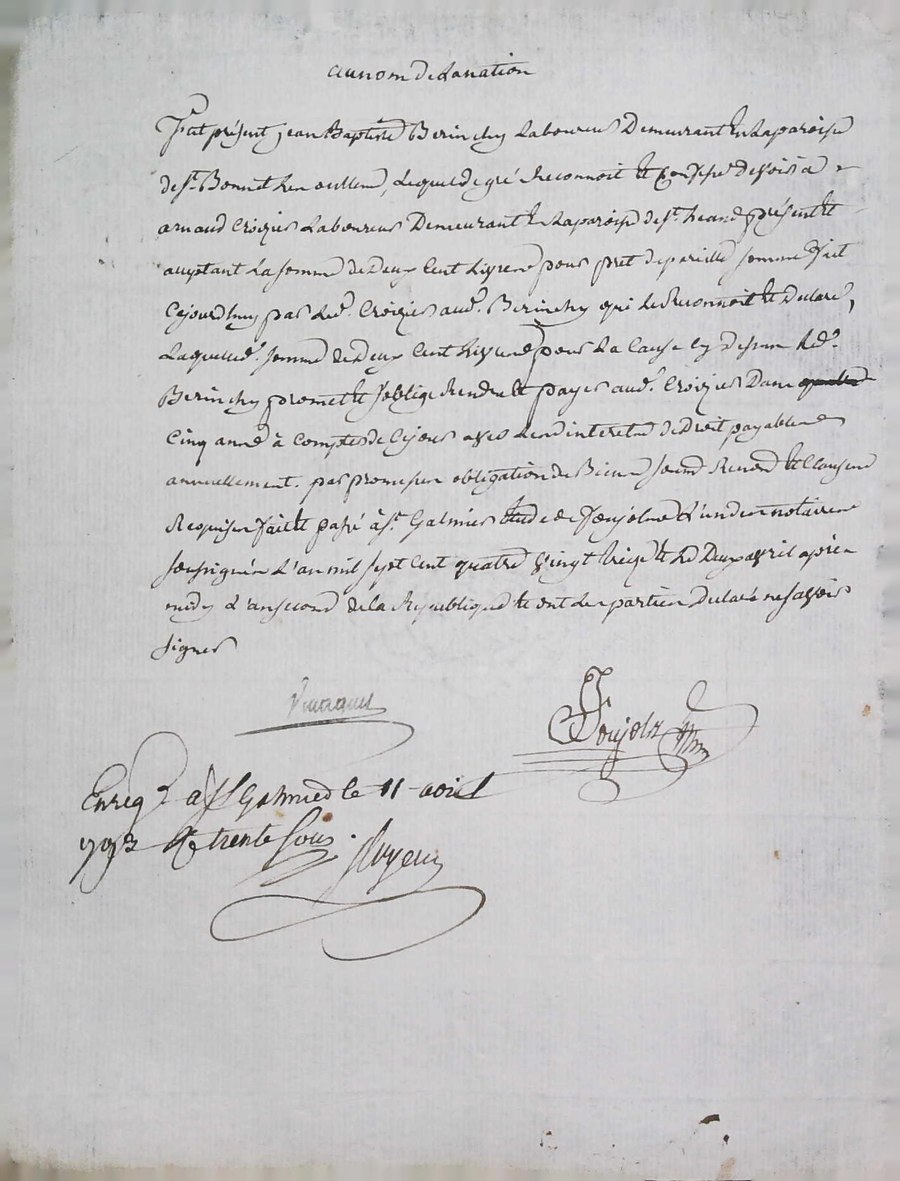 au nom de la nation
fut présent jean Baptiste Berinchy Laboureur Demeurant En La paroisse
de St. Bonnet Les oulles, Lequel de gré Reconnoit et Confesse devoir a
arnaud Croizier Laboureur Demeurant En La paroisse de St. heand présent et
acceptant La somme de Deux Cent Livres pour pret de pareille somme fait
Cejourdhuy par Led. Croizier aud. Berinchy qui Le Reconnoit et Declare,
Laquelle d. somme de Deux Cent Livres pour La Cause Cy dessus Led.
Berinchy promet et s'oblige Rendre et payer aud. Croizier Dans
Cinq années à Compter de Cejour avec Les interets de Droit payables
annuellement. par promesses obligation de Biens soumis Renon et Clauses
Requises fait et passé à St. Galmier Etude de foujols L'un des notaires
soussignés L'an mil sept cent quatre vingt treize et Le Deux avril après
midy L'an second de la Republique et ont Les parties Declaré ne savoir
signer
foujols
Enreg. a St Galmier le 11 avril
1793 R trente sous.